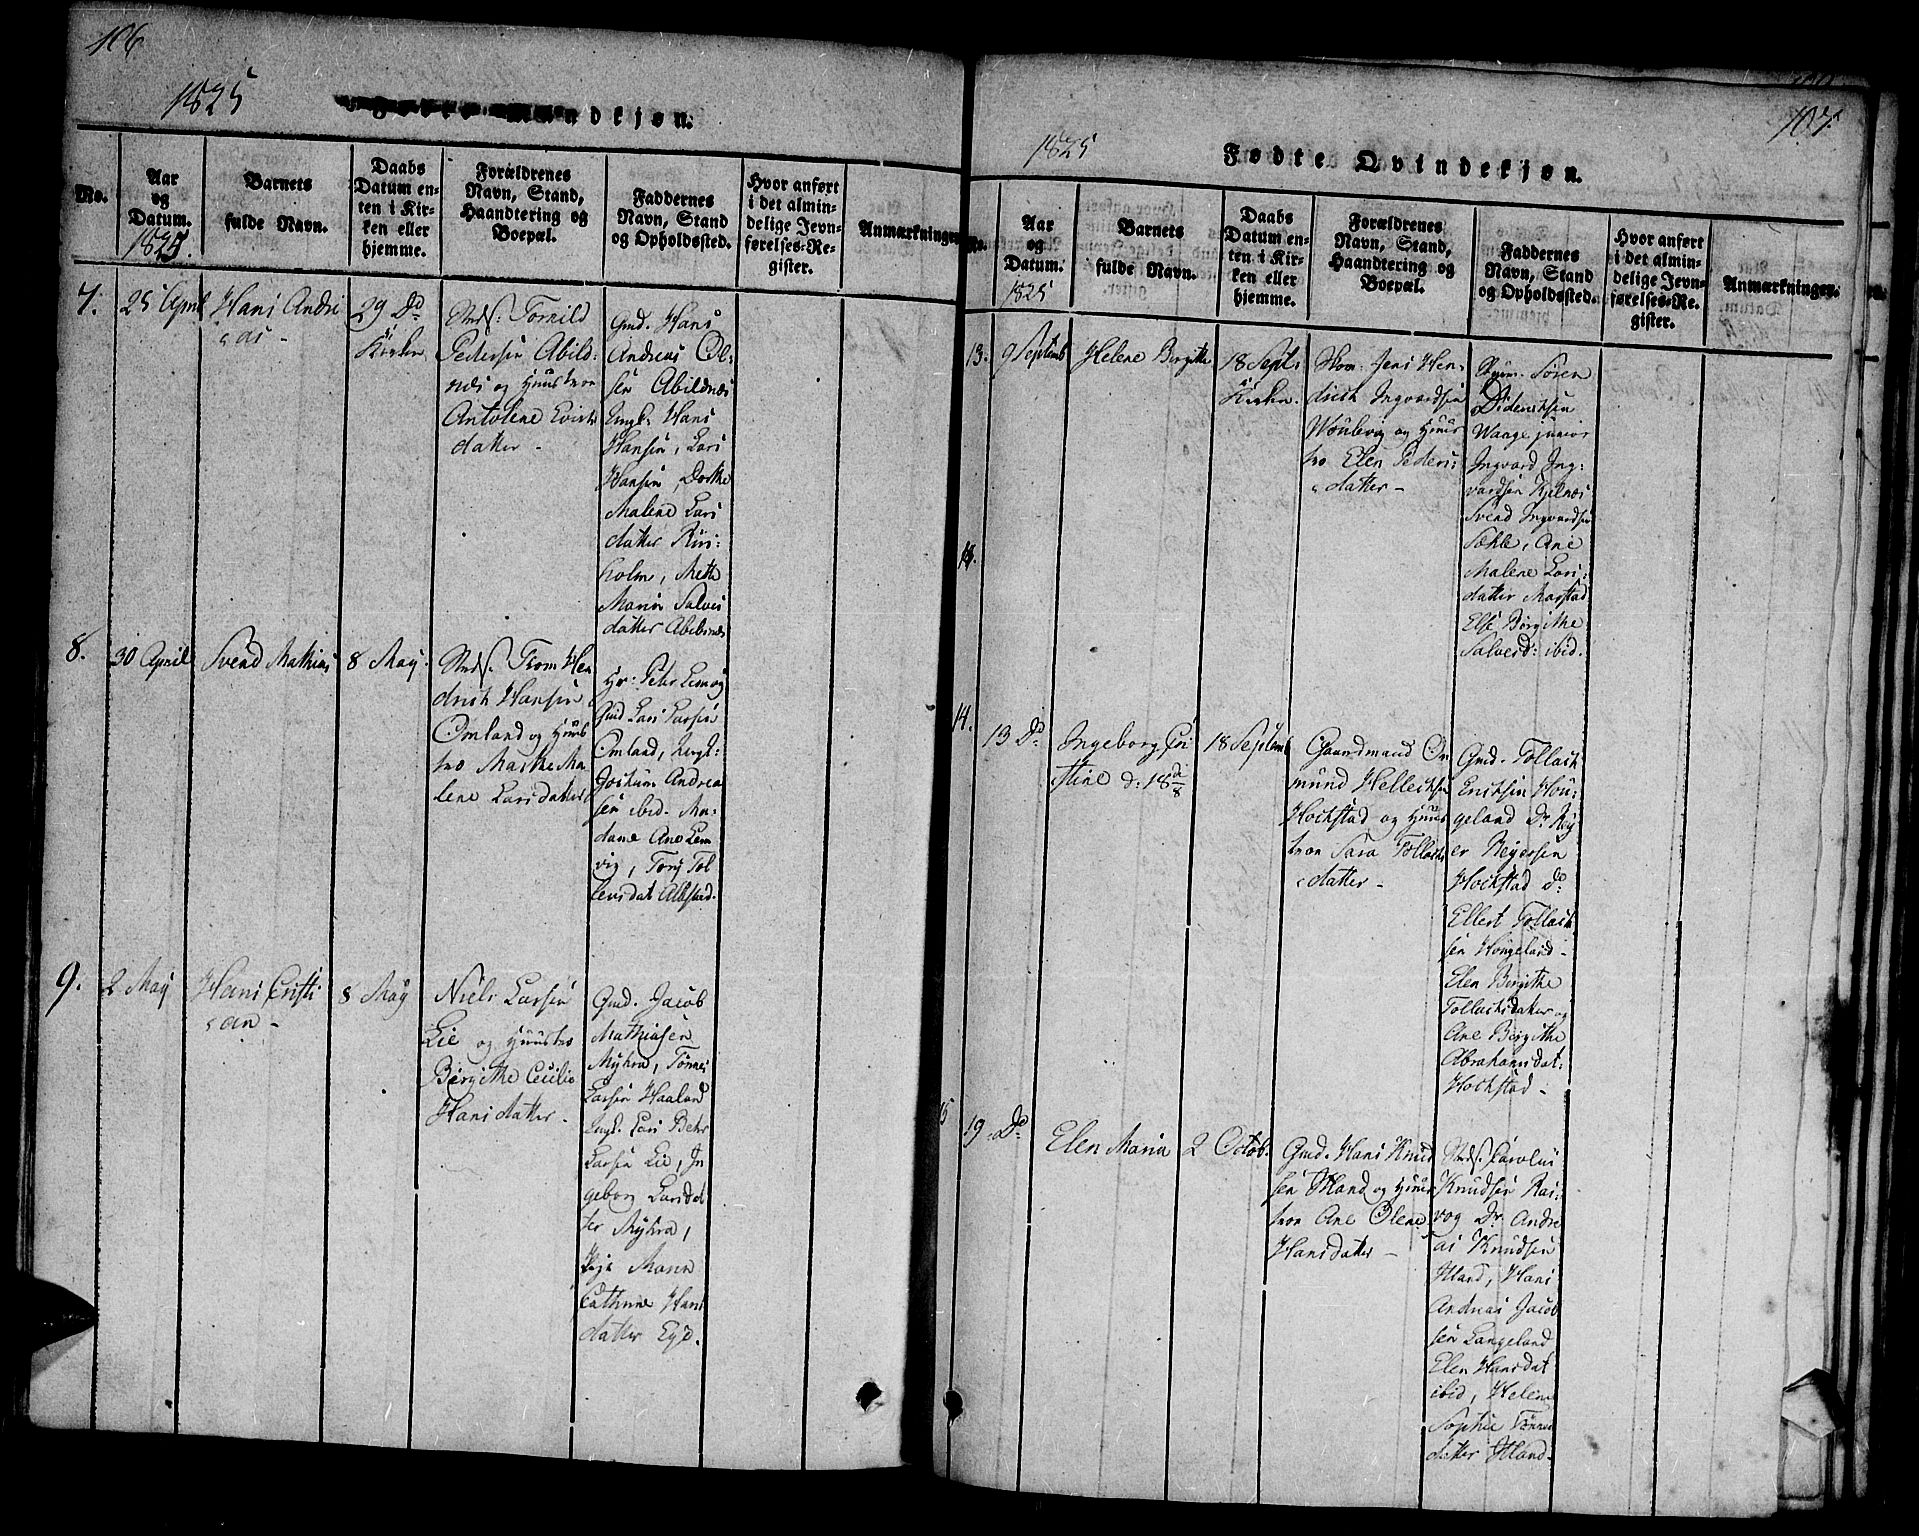 106
1825
ndkjøn.
No.
Aar
og
Datum.
1825.
Barnets
fulde Navn.
Daabs
Datum en-
ten i Kir-
ken eller
hjemme.
Forældrenes
Navn, Stand,
Haandtering og
Boepæl.
Faddernes
Navn, Stand
og Opholdssted.
Hvor anført
i det almin-
delige Jevn-
førelses-Re-
gister.
Anmærkninger
7.
25 April
Hans Andre
as -
29 Do
Kirken
Tornild
Pedersen Abild-
næs og Huustroe
Antolene
datter -
Gmd. Hans
Andreas Ol-
sen Abildnæs
Ungk: Hans
Hansen, Lars
Hansen, Dorthe
Malene Lars
datter
holm, Mette
Maria Salves
datter Abildnæs
8.
30 April
Svend Mathias
8 May.
Trom Hen
drich Hansen
Omland og Huus
tro Marthe Ma
lene Larsdatter
Hr: Peter Lemvig
Gmd Lars Larsen
Omland, Ungk:
Jochum Andrea
sen ibid. Ma-
dame Ane Lem
vig, Tonj Tol
levsdat
9.
2 May
Hans Cristi
an -
8 May
Niels Larsen
Lie og Huustro
Birgithe Cecilie
Hansdatter -
Gmd. Jacob
Mathiasen
Myhra, Tønnes
Larsen Haaland
Ungk. Lars Behr
Larsen Lie, In
geborg Larsdat
ter Myhra,
Pige Maria
Cathrine Hans
datter Egd.
107.
1825
Fødte Qvindekjøn.
No.
Aar
og
Datum.
1825
Barnets
fulde Navn.
Daabs
Datum en-
ten i Kir-
ken eller
hjemme.
Forældrenes
Navn, Stand,
Haandtering og
Boepæl.
Faddernes
Navn, Stand
og Opholdssted.
Hvor anført
i det almin-
delige Jevn-
førelses-Re-
gister.
Anmærkninger.
13.
9 Septemb
Helene Birgitte
18 Sept.
Kirken.
Jens Hen-
drich Ingvardsen
og Huus
tro Elen Peders-
datter -
Søren
Didericksen
Wange junior
Ingvard Ing-
vardsen Kjelnæs
Svend Ingvardsen
Ane
Malene Lars-
datter Marstad
Else Birgithe
Salvesd: ibid.
14.
13 Do
Ingeborg Cri
stine d: 18
18 Septemb
Gaardmand Os
mund Hellecksen
Hockstad og Huus
troe Sara Tollacks
datter -
Gmd. Tollack
Ericksen Hou-
geland Do Rey
er Reyersen
Hockstad do:
Ellert Tollack
sen Hougeland -
Elen Birgithe
Tollacksdatter og
Ane Birgithe
Abrahamsdat:
Hockstad -
15
19 Do
Elen Maria
2 Octob.
Gmd. Hans Knud
sen og Huus
troe Ane Olene
Hansdatter -
Carolus
Knudsen Ras-
vog Do Andre
as Knudsen
Hans
Andreas Jacob
sen Langeland
Elen Hansdat
ibid, Helene
Sophie Tønnes
datter